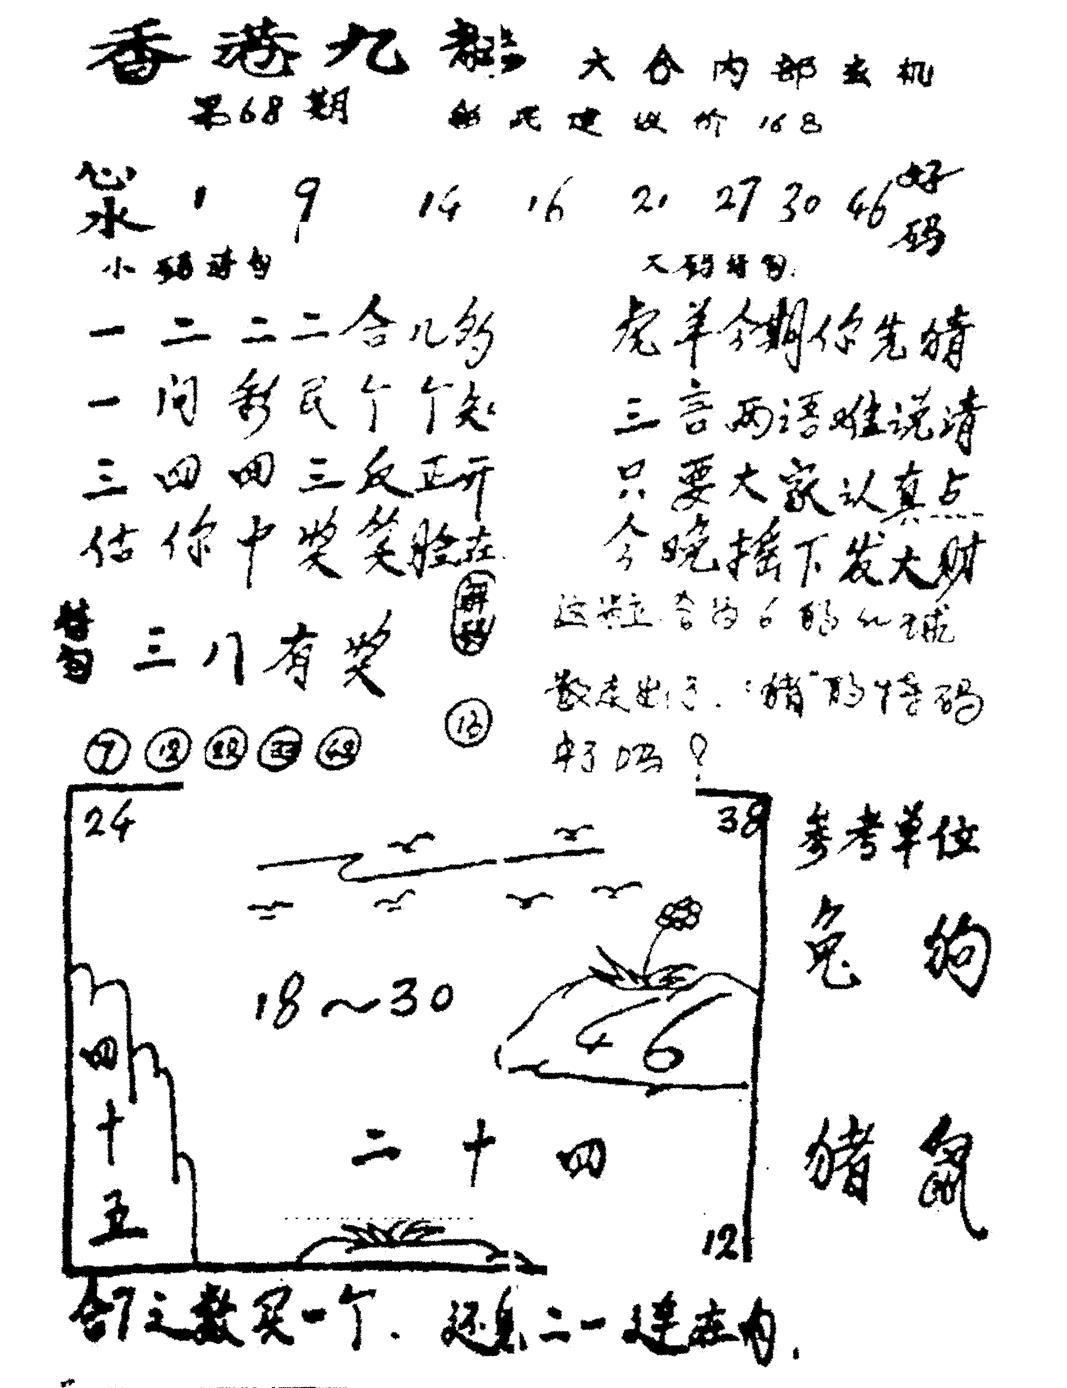 香港九龍 六合内部玄机
第68期 彩民建议价168
心水 1 9 14 16 21 27 30 46 好码
小码诗句 大码诗句.
一二二二合几多
一问彩民个个知
三四四三反正开
估你中奖笑脸在
虎羊今期你先猜
三言两语难说清
只要大家认真点
今晚摇下发大财
特句 三八有奖
7 12 22 33 42
16
了.:"猪"的特码
中了吗?
24
38
18~30
46
四十五
二十四
12
参考单位
兔 狗
猪 鼠
合7之数买一个. 还是二一连在内.